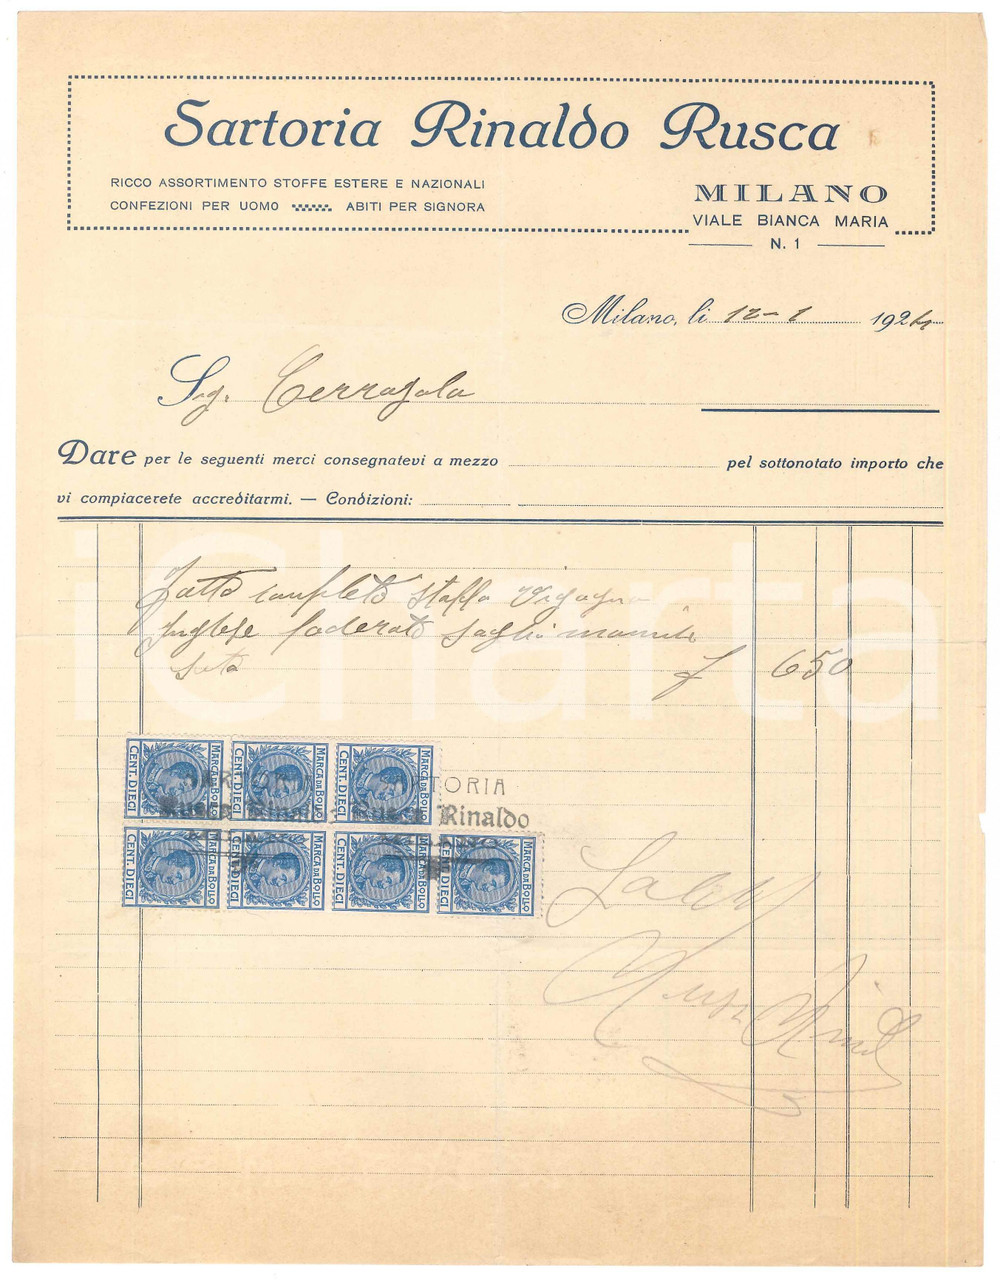 Sartoria Rinaldo Rusca
RICCO ASSORTIMENTO STOFFE ESTERE E NAZIONALI
CONFEZIONI PER UOMO ABITI PER SIGNORA
MILANO
VIALE BIANCA MARIA
N. 1
Milano, li 12-1 1924
Sig.
Dare per le seguenti merci consegnatevi a mezzo pel sottonotato importo che
vi compiacerete accreditarmi. — Condizioni:
iCharta
Fatto completo stoffa Vigogna
Inglese foderato
seta £ 650
MARCA DA BOLLO CENT. DIECI MARCA DA BOLLO CENT. DIECI MARCA DA BOLLO CENT. DIECI
SARTORIA
Rusca Rinaldo Rusca Rinaldo
MILANO
MARCA DA BOLLO CENT. DIECI MARCA DA BOLLO CENT. DIECI MARCA DA BOLLO CENT. DIECI MARCA DA BOLLO CENT. DIECI
Rusca Rinaldo